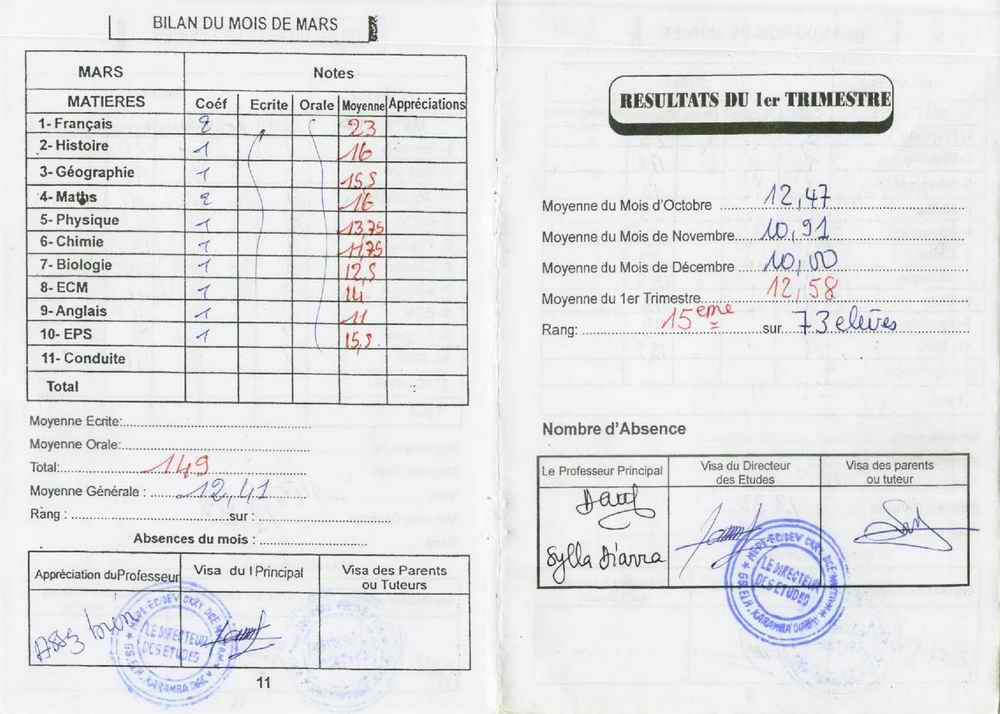 BILAN DU MOIS DE MARS
MARS Notes
MATIERES Coéf Ecrite Orale Moyenne Appréciations
1- Français 2 23
2- Histoire 1 16
3- Géographie 1 15,5
4- Maths 2 16
5- Physique 1 13,75
6- Chimie 1 11,75
7- Biologie 1 12,5
8- ECM 1 14
9- Anglais 1 11
10- EPS 1 15,5
11- Conduite
Total
Moyenne Ecrite:
Moyenne Orale:
Total: 149
Moyenne Générale : 12,41
Rang : sur :
Absences du mois :
Appréciation du Professeur Visa du l Principal Visa des Parents ou Tuteurs
Assz bien
LE DIRECTEUR
DES ETUDES
11
RESULTATS DU 1er TRIMESTRE
Moyenne du Mois d'Octobre 12,47
Moyenne du Mois de Novembre 10,91
Moyenne du Mois de Décembre 10,00
Moyenne du 1er Trimestre 12,58
Rang: 15eme sur 73 elèves
Nombre d'Absence
Le Professeur Principal Visa du Directeur des Etudes Visa des parents ou tuteur
Sylla Diarra
LE DIRECTEUR
DES ETUDES